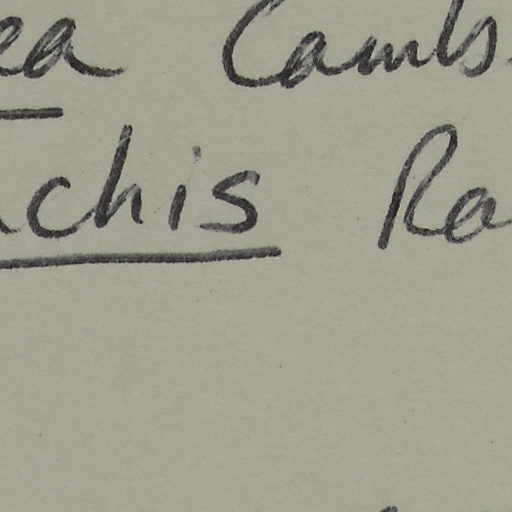 ea Camb.
chis Ra